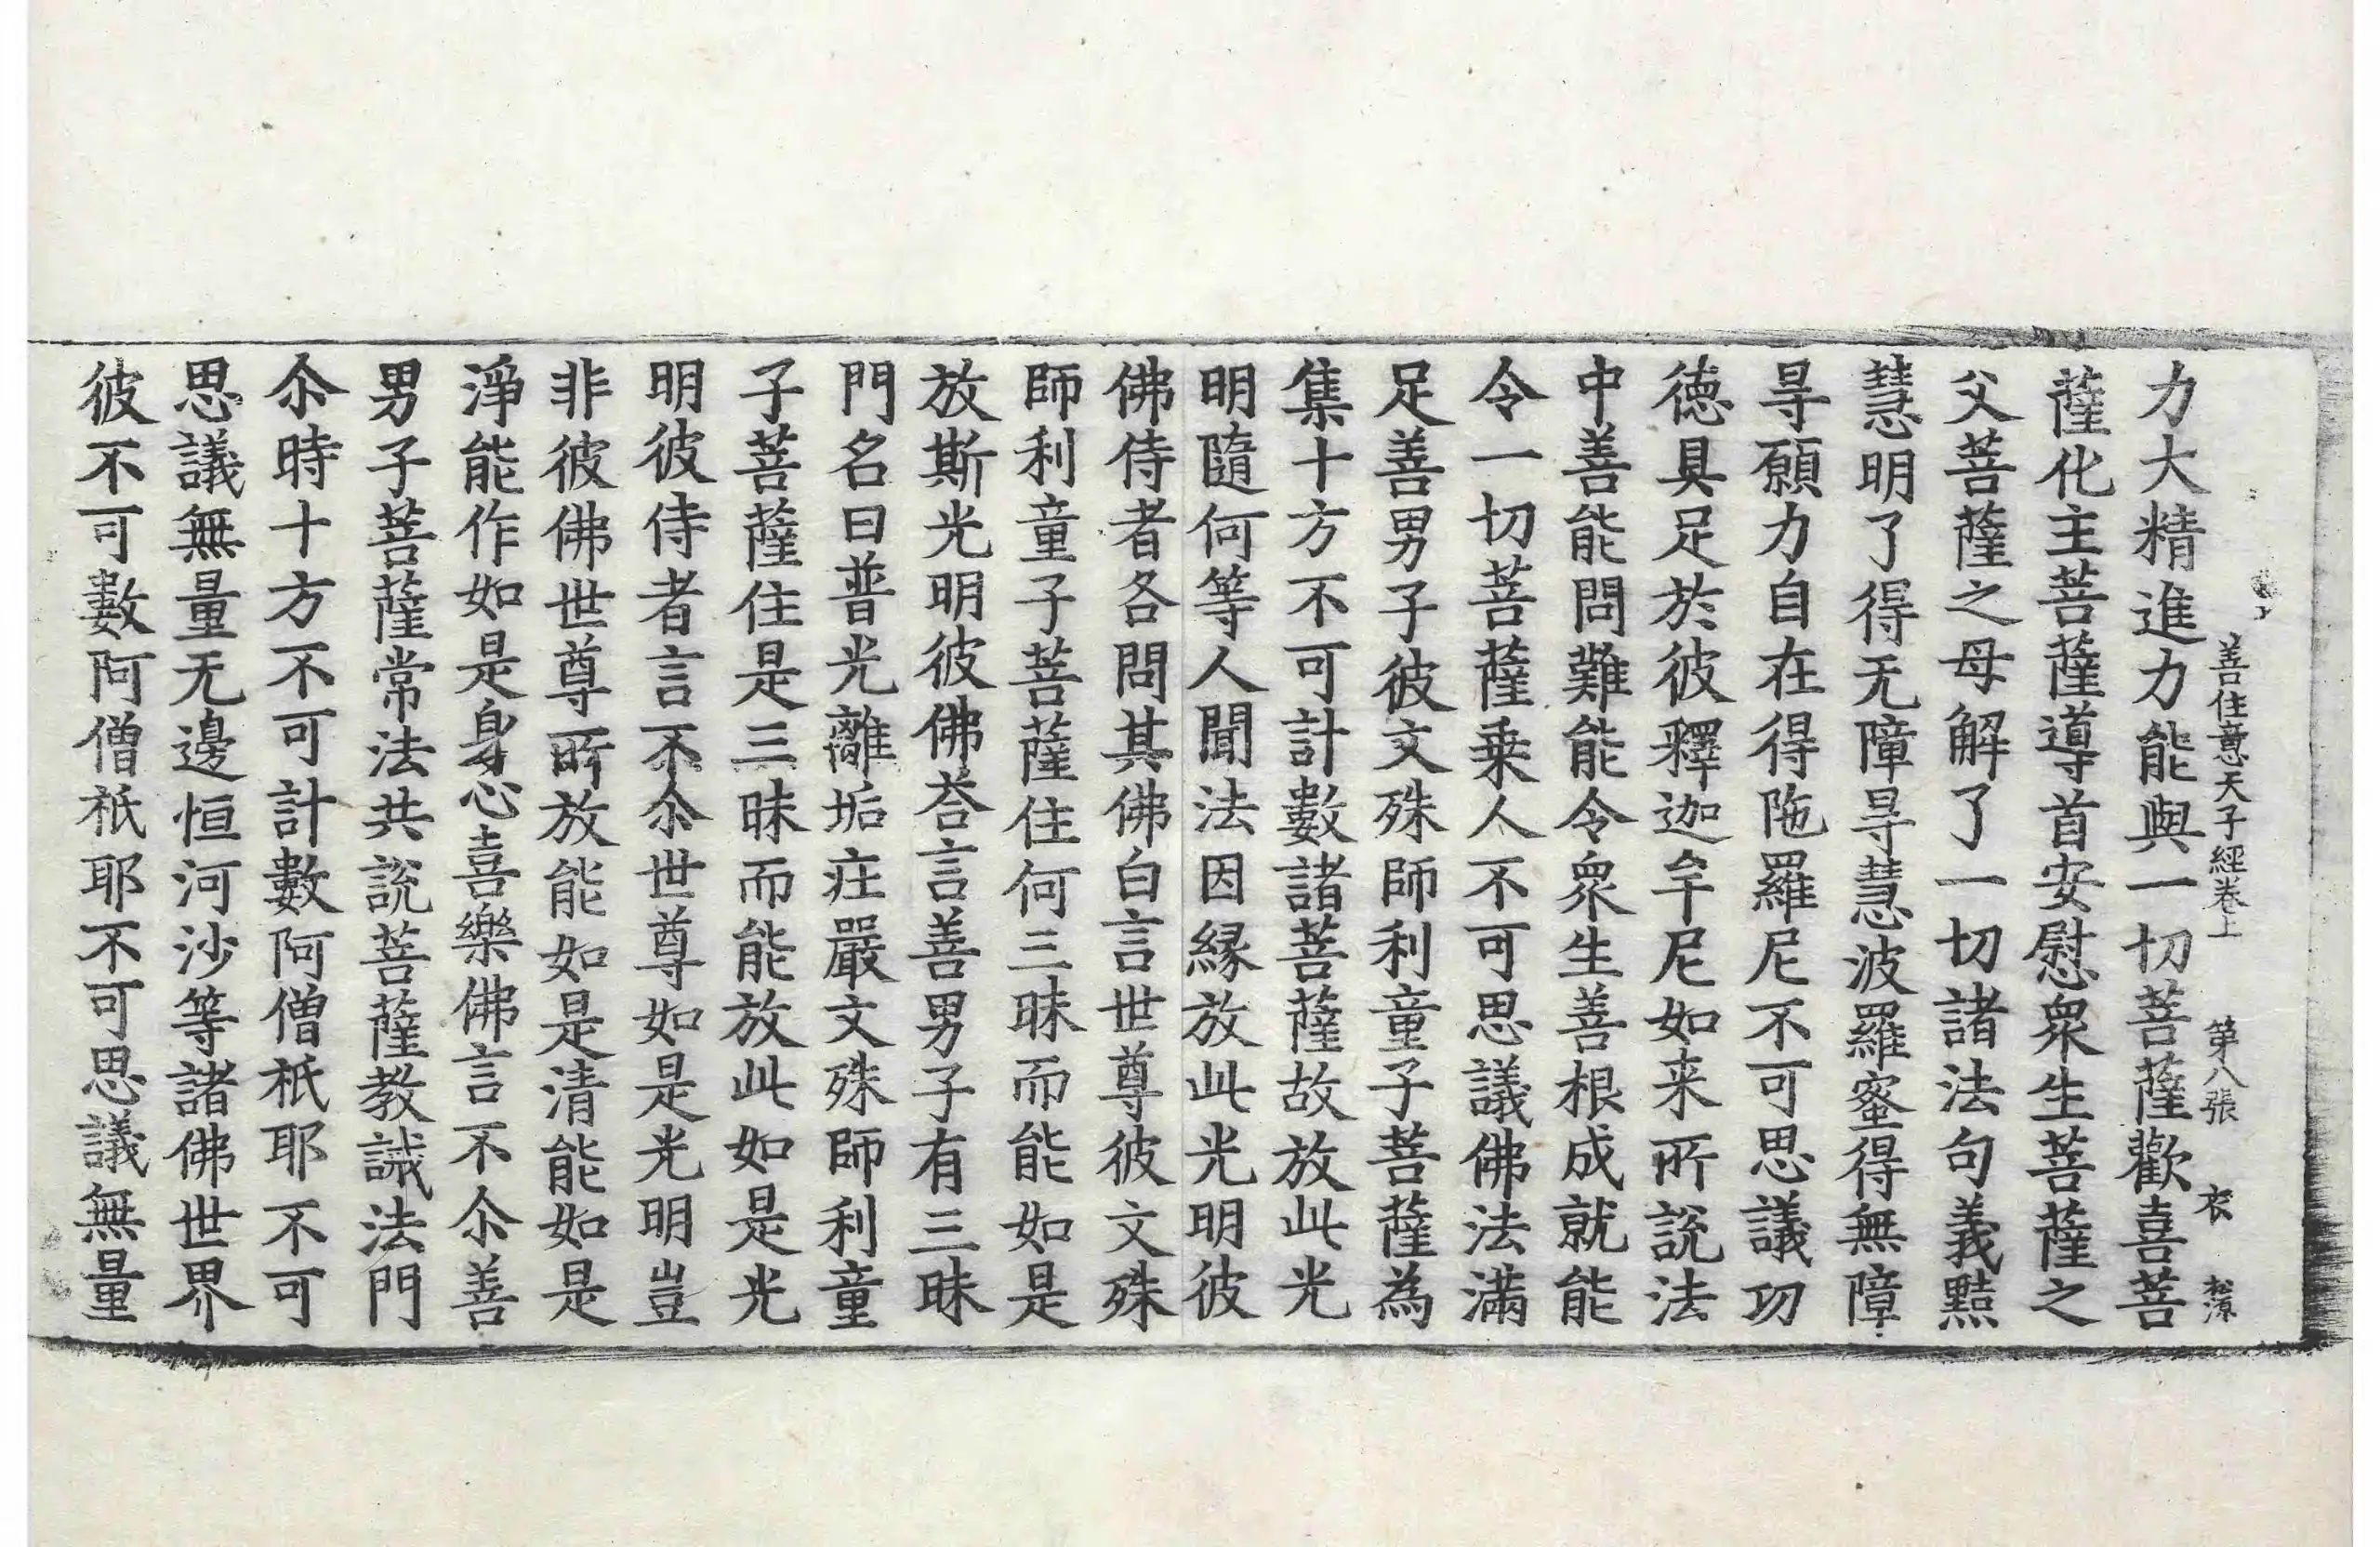 善住意天子經卷上　第八張　衣　松源
力大精進力能與一切菩薩歡喜菩
薩化主菩薩導首安慰衆生菩薩之
父菩薩之母解了一切諸法句義黠
慧明了得无障㝵慧波羅蜜得無障
㝵願力自在得陁羅尼不可思議功
德具足於彼釋迦牟尼如来所說法
中善能問難能令衆生善根成就能
令一切菩薩乗人不可思議佛法滿
足善男子彼文殊師利童子菩薩為
集十方不可計數諸菩薩故放此光
明隨何等人聞法因縁放此光明彼
佛侍者各問其佛白言世尊彼文殊
師利童子菩薩住何三昧而能如是
放斯光明彼佛荅言善男子有三昧
門名曰普光離垢疘嚴文殊師利童
子菩薩住是三昧而能放此如是光
明彼侍者言不尒世尊如是光明豈
非彼佛世尊所放能如是清能如是
淨能作如是身心喜樂佛言不尒善
男子菩薩常法共說菩薩教誡法門
尒時十方不可計數阿僧祇耶不可
思議無量无邊恒河沙等諸佛世界
彼不可數阿僧祇耶不可思議無量